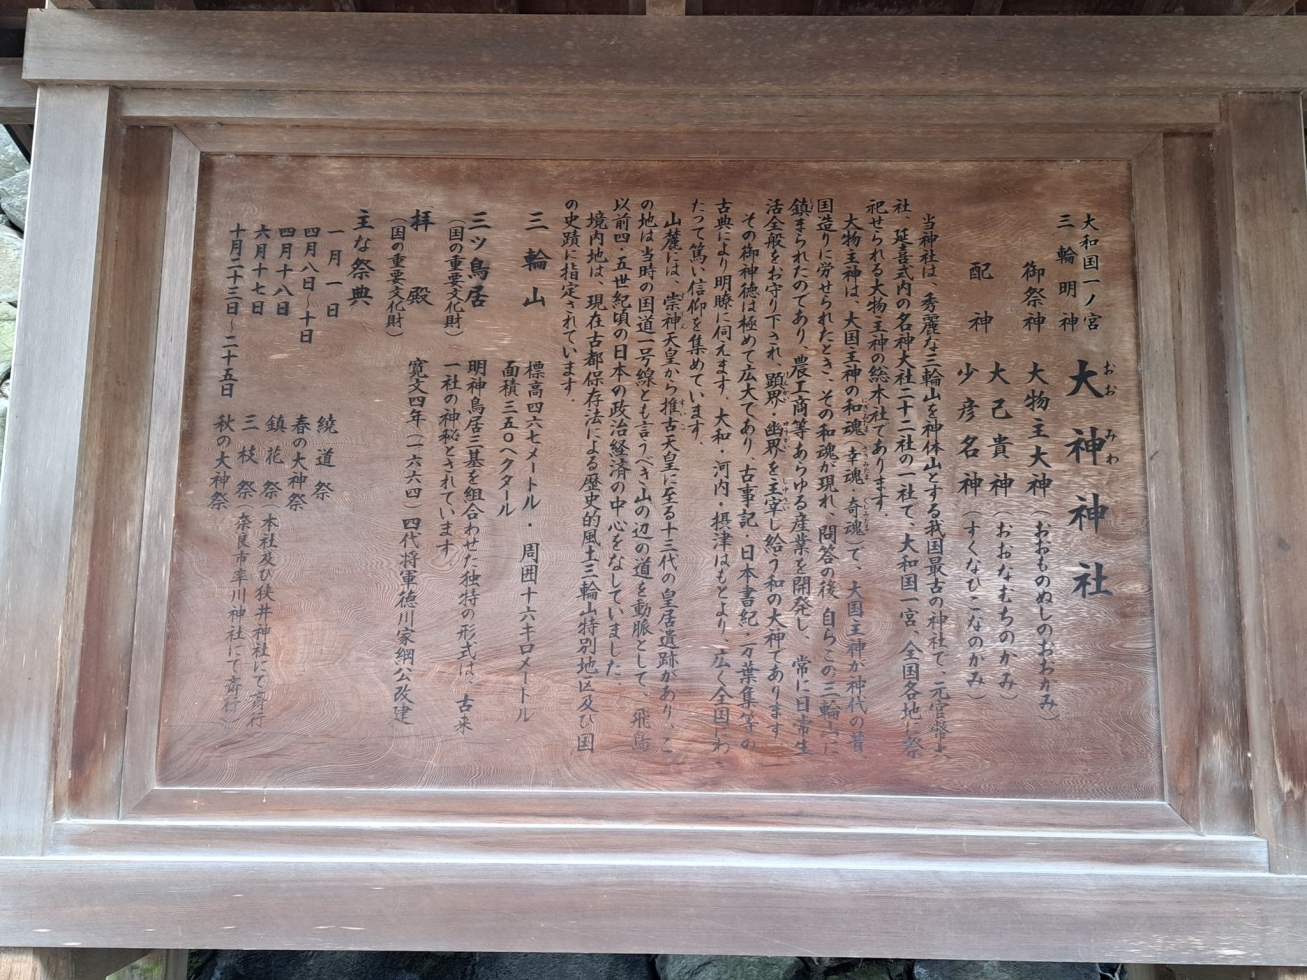 大和国一ノ宮
三輪明神
大神神社
おお みわ
御祭神 大物主大神(おおものぬしのおおかみ)
配神 大己貴神(おおなむちのかみ)
少彦名神(すくなひこなのかみ)
当神社は、秀麗な三輪山を神体山とする我国最古の神社で、元官幣大
社、延喜式内の名神大社二十二社の一社で、大和国一宮、全国各地に祭
祀せられる大物主神の総本社であります。
大物主神は、大国主神の和魂(幸魂・奇魂)で、大国主神が神代の昔
国造りに労せられたとき、その和魂が現れ、問答の後、自らこの三輪山に
鎮まられたのであり、農工商等あらゆる産業を開発し、常に日常生
活全般をお守り下され、顕界・幽界を主宰し給う和の大神であります
その御神徳は極めて広大であり、古事記・日本書紀・万葉集等の
古典により明瞭に伺えます。大和・河内・摂津はもとより、広く全国にわ
たって篤い信仰を集めています。
山麓には、崇神天皇から推古天皇に至る十三代の皇居遺跡があり、こ
の地は当時の国道一号線とも言うべき山の辺の道を動脈として、飛鳥
以前四・五世紀頃の日本の政治経済の中心をなしていました
境内地は、現在古都保存法による歴史的風土三輪山特別地区及び国
の史蹟に指定されています。
三輪山 標高四六七メートル・周囲十六キロメートル
面積三五〇ヘクタール
三ツ鳥居 明神鳥居三基を組合わせた独特の形式は、古来
(国の重要文化財) 一社の神秘とされています
拝殿 寛文四年(一六六四)四代将軍徳川家綱公改建
(国の重要文化財)
主な祭典
一月一日 繞道祭
四月八日~十日 春の大神祭
四月十八日 鎮花祭(本社及び狭井神社にて斎行)
六月十七日 三枝祭(奈良市率川神社にて斎行)
十月二十三日~二十五日 秋の大神祭